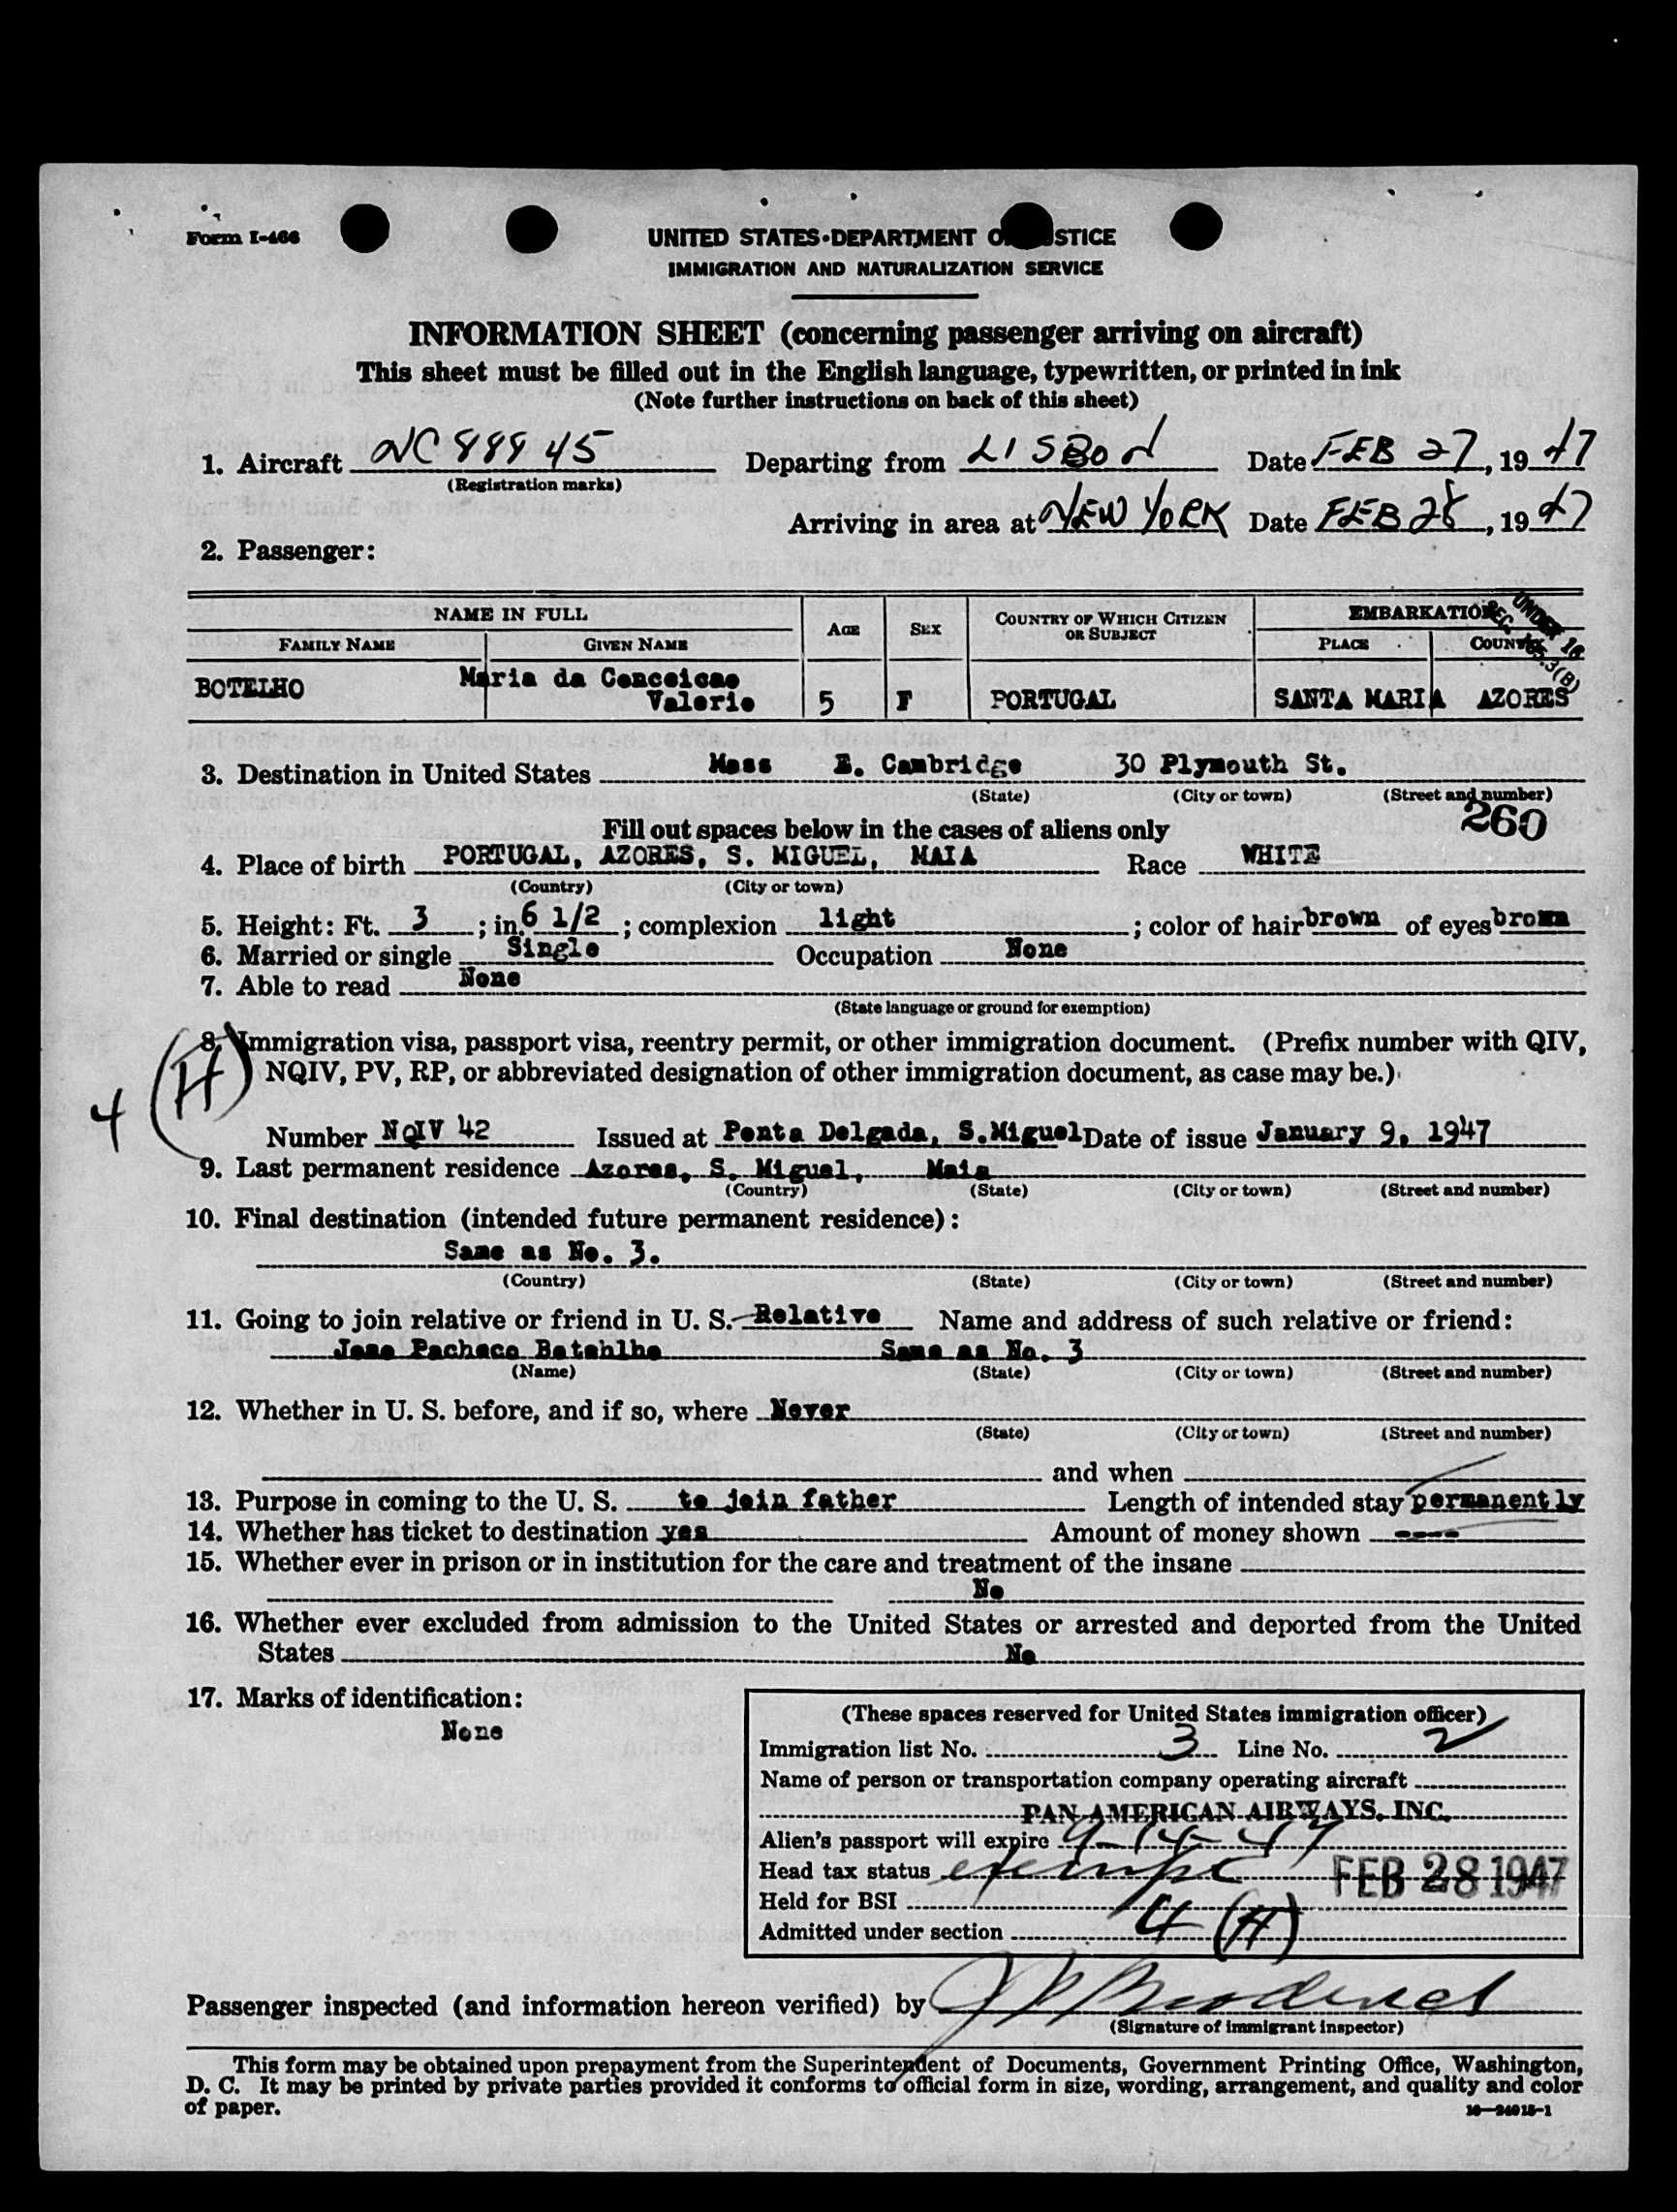 Form I-466
UNITED STATES DEPARTMENT O STICE
IMMIGRATION AND NATURALIZATION SERVICE
INFORMATION SHEET (concerning passenger arriving on aircraft)
This sheet must be filled out in the English language, typewritten, or printed in ink
(Note further instructions on back of this sheet)
1. Aircraft NC 88945 Departing from LISBON Date FEB 27, 19 47
(Registration marks)
Arriving in area at NEW YORK Date FEB 28, 19 47
2. Passenger:
NAME IN FULL AGE SEX COUNTRY OF WHICH CITIZEN OR SUBJECT EMBARKATION
FAMILY NAME GIVEN NAME PLACE COUNTRY
UNDER 16
SEC. 3(B)
BOTELHO Maria da Conceicao Valerio 5 F PORTUGAL SANTA MARIA AZORES
3. Destination in United States Mass E. Cambridge 30 Plymouth St.
(State) (City or town) (Street and number)
260
Fill out spaces below in the cases of aliens only
4. Place of birth PORTUGAL, AZORES, S. MIGUEL, MAIA Race WHITE
(Country) (City or town)
5. Height: Ft. 3 ; in. 6 1/2 ; complexion light ; color of hair brown of eyes brown
6. Married or single Single Occupation None
7. Able to read None
(State language or ground for exemption)
8. Immigration visa, passport visa, reentry permit, or other immigration document. (Prefix number with QIV,
NQIV, PV, RP, or abbreviated designation of other immigration document, as case may be.)
4 (H)
Number NQIV 42 Issued at Ponta Delgada, S.Miguel Date of issue January 9, 1947
9. Last permanent residence Azores, S. Miguel, Maia
(Country) (State) (City or town) (Street and number)
10. Final destination (intended future permanent residence):
Same as No. 3.
(Country) (State) (City or town) (Street and number)
11. Going to join relative or friend in U. S. Relative Name and address of such relative or friend:
Jose Pacheco Botehlho Same as No. 3
(Name) (State) (City or town) (Street and number)
12. Whether in U. S. before, and if so, where Never
(State) (City or town) (Street and number)
and when
13. Purpose in coming to the U. S. to join father Length of intended stay permanently
14. Whether has ticket to destination yes Amount of money shown ----
15. Whether ever in prison or in institution for the care and treatment of the insane
No
16. Whether ever excluded from admission to the United States or arrested and deported from the United
States No
17. Marks of identification:
None
(These spaces reserved for United States immigration officer)
Immigration list No. 3 Line No. 2
Name of person or transportation company operating aircraft
PAN AMERICAN AIRWAYS, INC.
Alien's passport will expire 9-14-47
Head tax status exempt FEB 28 1947
Held for BSI
Admitted under section 4 (H)
Passenger inspected (and information hereon verified) by
(Signature of immigrant inspector)
This form may be obtained upon prepayment from the Superintendent of Documents, Government Printing Office, Washington,
D. C. It may be printed by private parties provided it conforms to official form in size, wording, arrangement, and quality and color
of paper.
16—24915-1